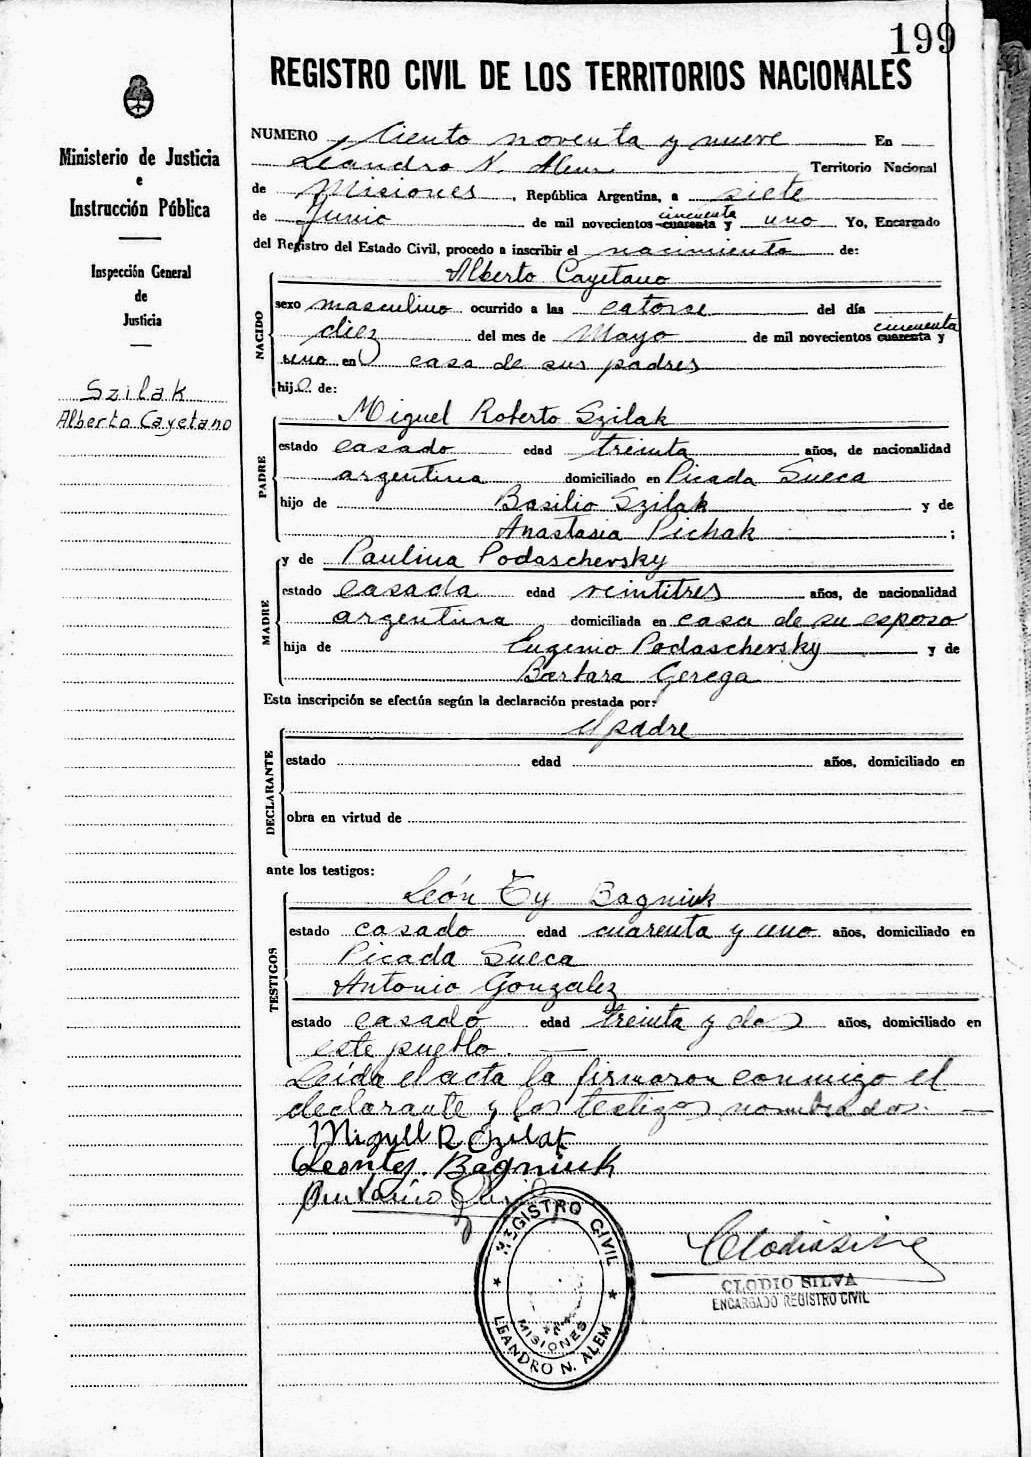 199
REGISTRO CIVIL DE LOS TERRITORIOS NACIONALES
Ministerio de Justicia
e
Instrucción Pública
Inspección General
de
Justicia
Szilak
Alberto Cayetano
NUMERO Ciento noventa y nueve En
Leandro N. Alem Territorio Nacional
de Misiones, República Argentina, a siete
de Junio de mil novecientos cuarenta cincuenta y uno Yo, Encargado
del Registro del Estado Civil, procedo a inscribir el nacimiento de:
NACIDO
Alberto Cayetano
sexo masculino ocurrido a las catorse del día
diez del mes de Mayo de mil novecientos cuarenta cincuenta y
uno en casa de sus padres
hijo de:
PADRE
Miguel Roberto Szilak
estado casado edad treinta años, de nacionalidad
argentina domiciliado en Picada Sueca
hijo de Basilio Szilak y de
Anastasia Pichak ;
MADRE
y de Paulina Podaschevsky
estado casada edad veintitres años, de nacionalidad
argentina domiciliada en casa de su esposo
hija de Eugenio Podaschevsky y de
Barbara Gerega
Esta inscripción se efectúa según la declaración prestada por:
DECLARANTE
el padre
estado edad años, domiciliado en
obra en virtud de
ante los testigos:
TESTIGOS
León Ty Bagniuk
estado casado edad cuarenta y uno años, domiciliado en
Picada Sueca
Antonio Gonzalez
estado casado edad treinta y dos años, domiciliado en
este pueblo.
Leída el acta la firmaron conmigo el
declarante y los testigos nombrados.
Miguel R Szilak
Leontey Bagniuk
REGISTRO CIVIL
MISIONES
LEANDRO N. ALEM
CLODIO SILVA
ENCARGADO REGISTRO CIVIL